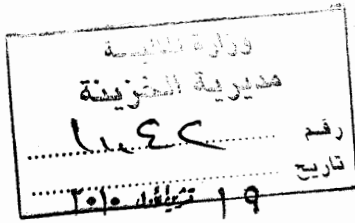 وزارة المالية
مديرية الخزينة
رقم
تاريخ
١٩ تشرين الأول ٢٠١٠